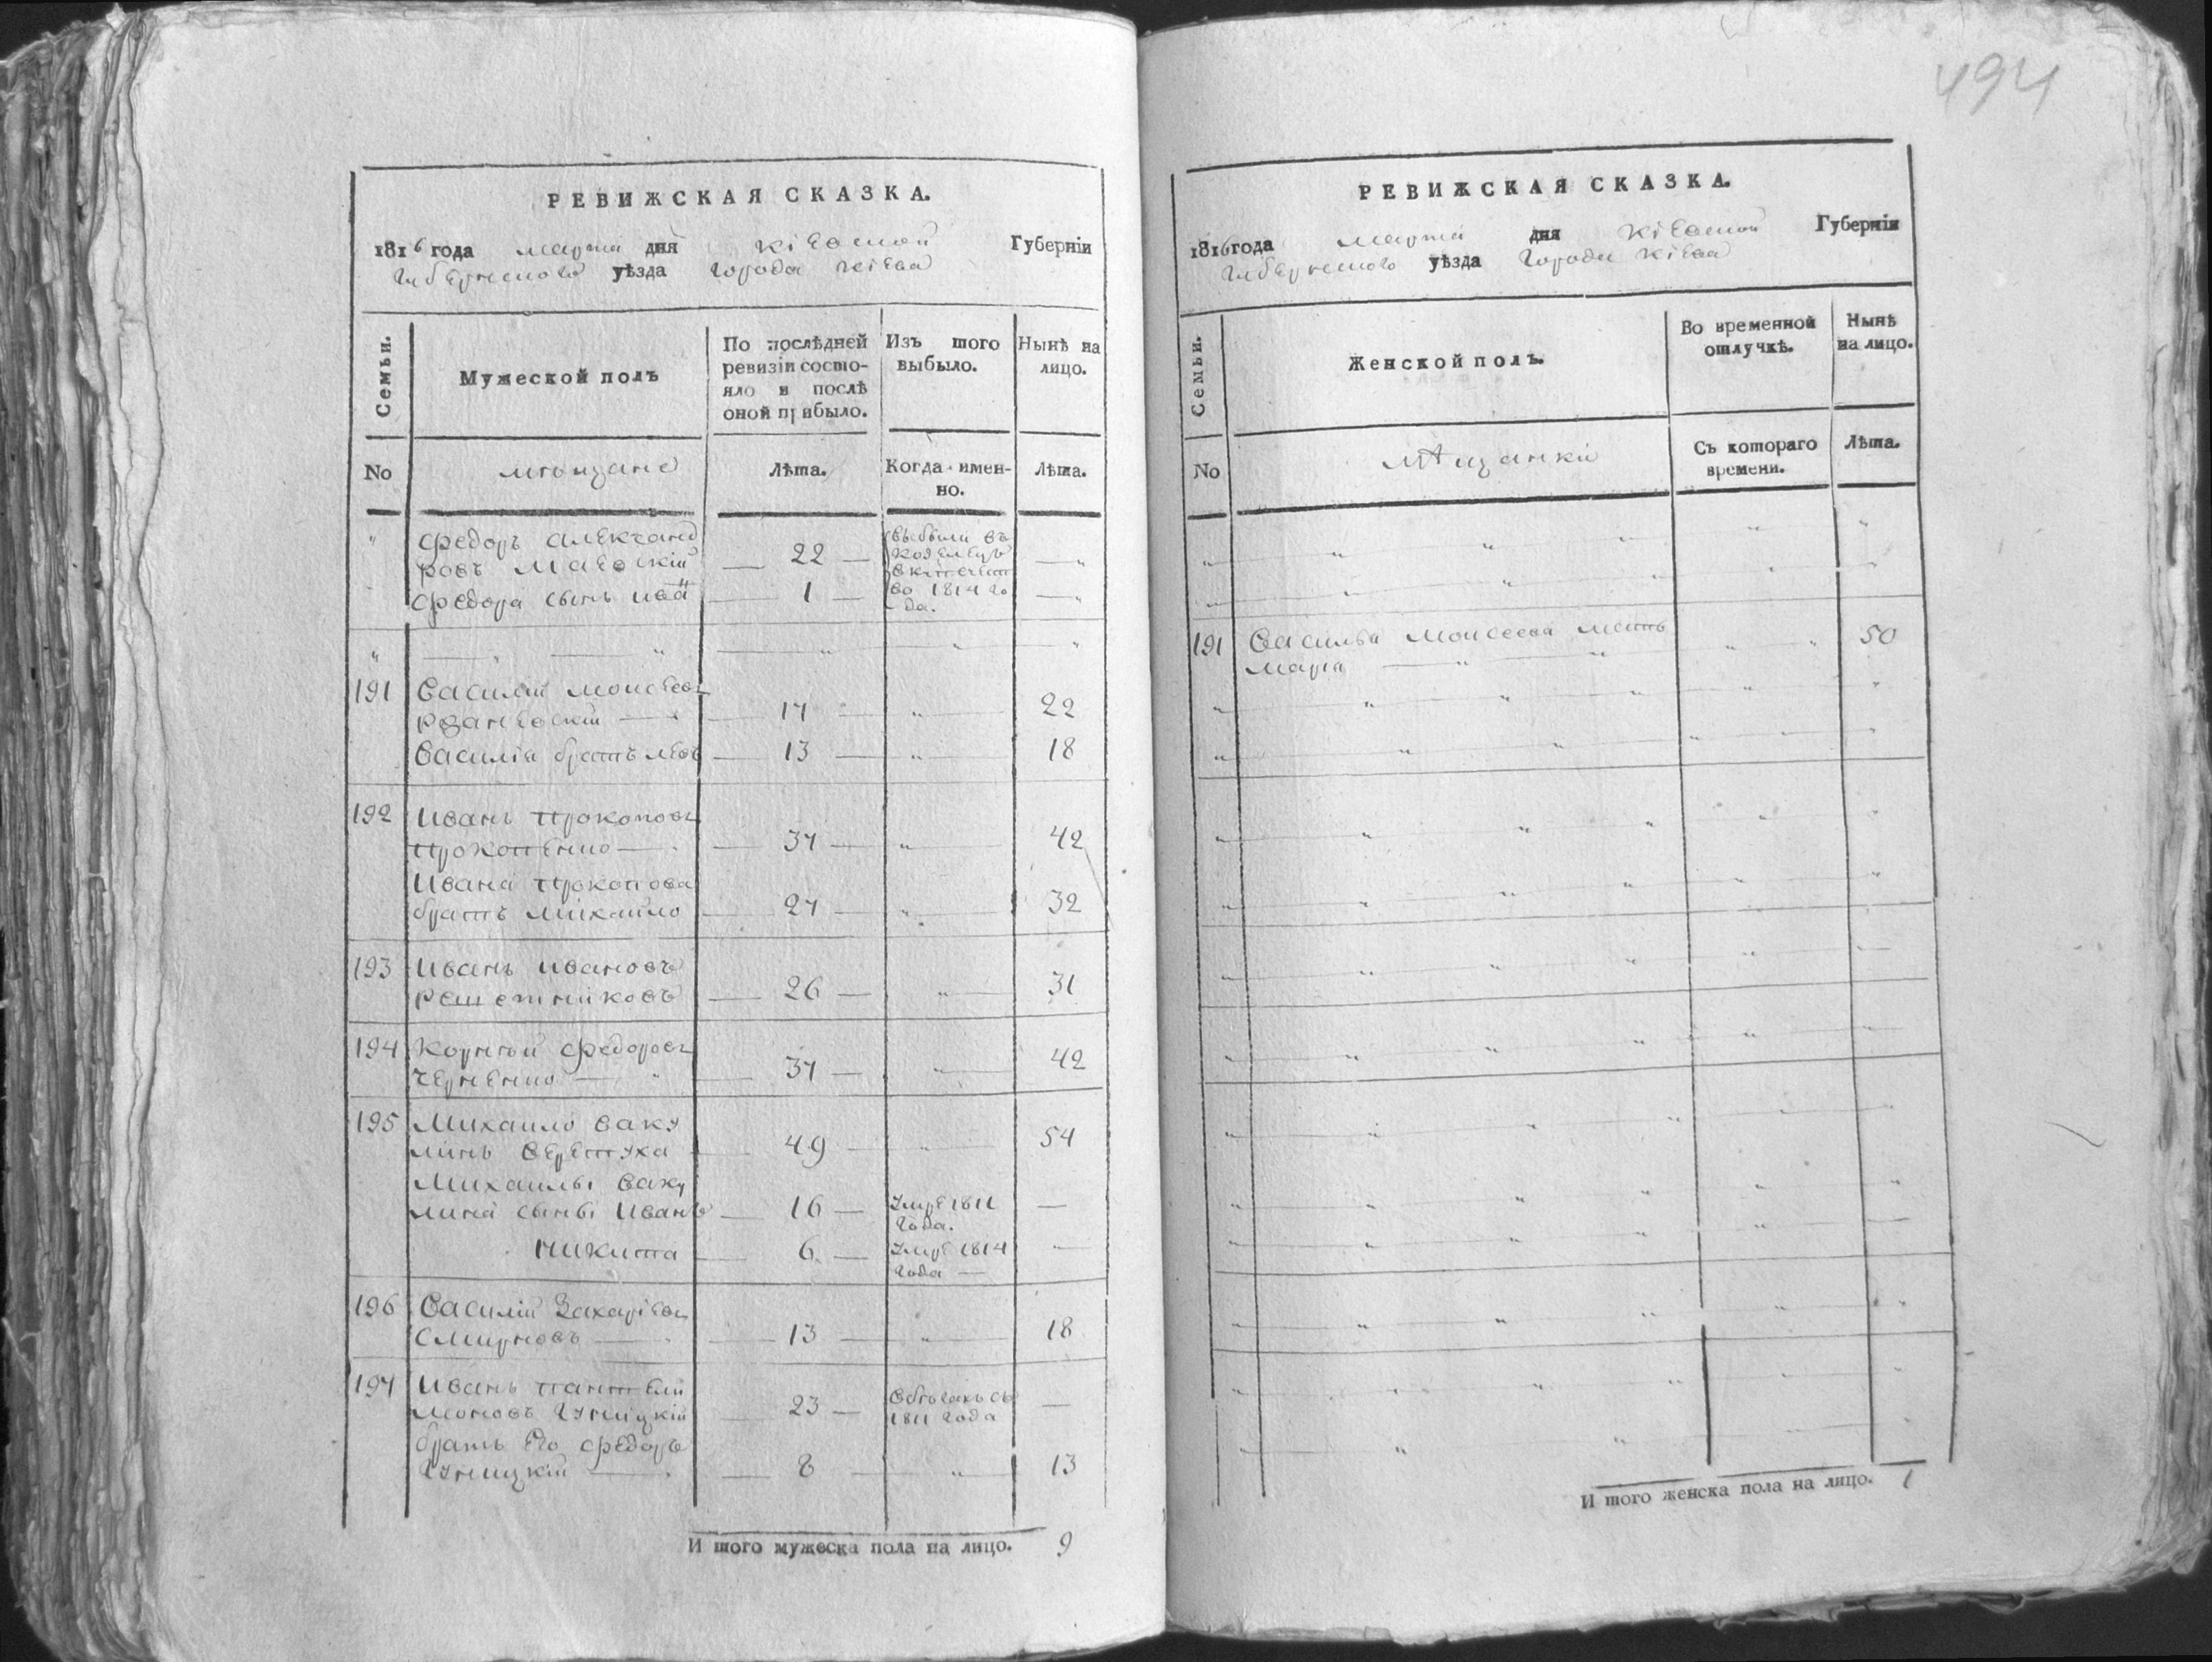 494
РЕВИЖСКАЯ СКАЗКА.
1816 года марта дня Кіевской Губерніи
Губернского уѣзда города Кіева
Семьи.
Мужеской полъ
По послѣдней ревизіи состояло и послѣ оной прибыло.
Изъ того выбыло.
Нынѣ на лицо.
No
мѣщане
Лѣта.
Когда имен-но.
Лѣта.
Федоръ Александ
ровъ Маевскій — 22 —
выбыли въ
Козелецъ
во 1814 го
да.
Федора сынъ — 1 —
191 Василій Моисеевъ
17 — 22
Василія братъ Левъ — 13 — 18
192 Иванъ Прокоповъ
Прокопенко — 37 — 42
Ивана Прокопова
братъ Михайло — 27 — 32
193 Иванъ Ивановъ
Решетниковъ — 26 — 31
194 Корнѣй Федоровъ
Черненко — 37 — 42
195 МихайлоВаку
линъ Веретуха — 49 — 54
МихайлыВаку
лина сыны Иванъ — 16 — умре 1811 —
года.
Никита — 6 — умре 1814 —
года —
196 Василій Захаріевъ
Смирновъ — 13 — 18
197 Иванъ Пантели
моновъ Гуницкій — 23 — въ бѣгахъ съ
1811 года —
братъ его Федоръ
Гуницкій — 8 — 13
И того мужеска пола на лицо. 9
РЕВИЖСКАЯ СКАЗКА.
1816 года марта дня Кіевской Губерніи
Губернского уѣзда города Кіева
Семьи.
Женской полъ.
Во временной отлучкѣ.
Нынѣ на лицо.
No
мѣщанки
Съ котораго времени.
Лѣта.
191 Василья Моисеева мать 50
Марія
И того женска пола на лицо. 1